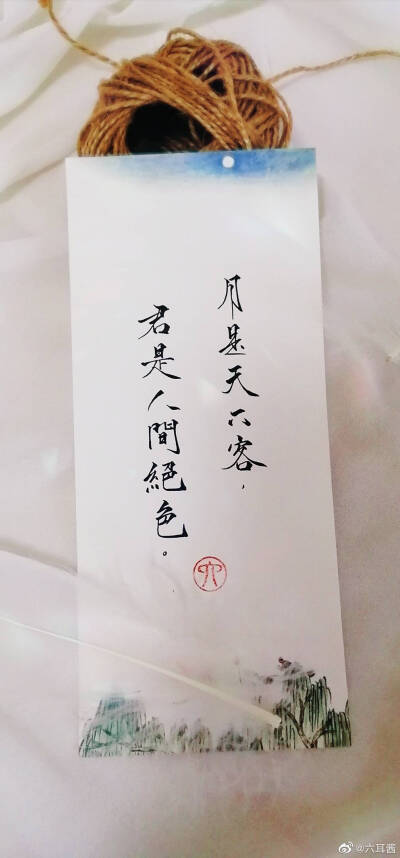 月是天下客，
君是人間絕色。
六
@六耳酱